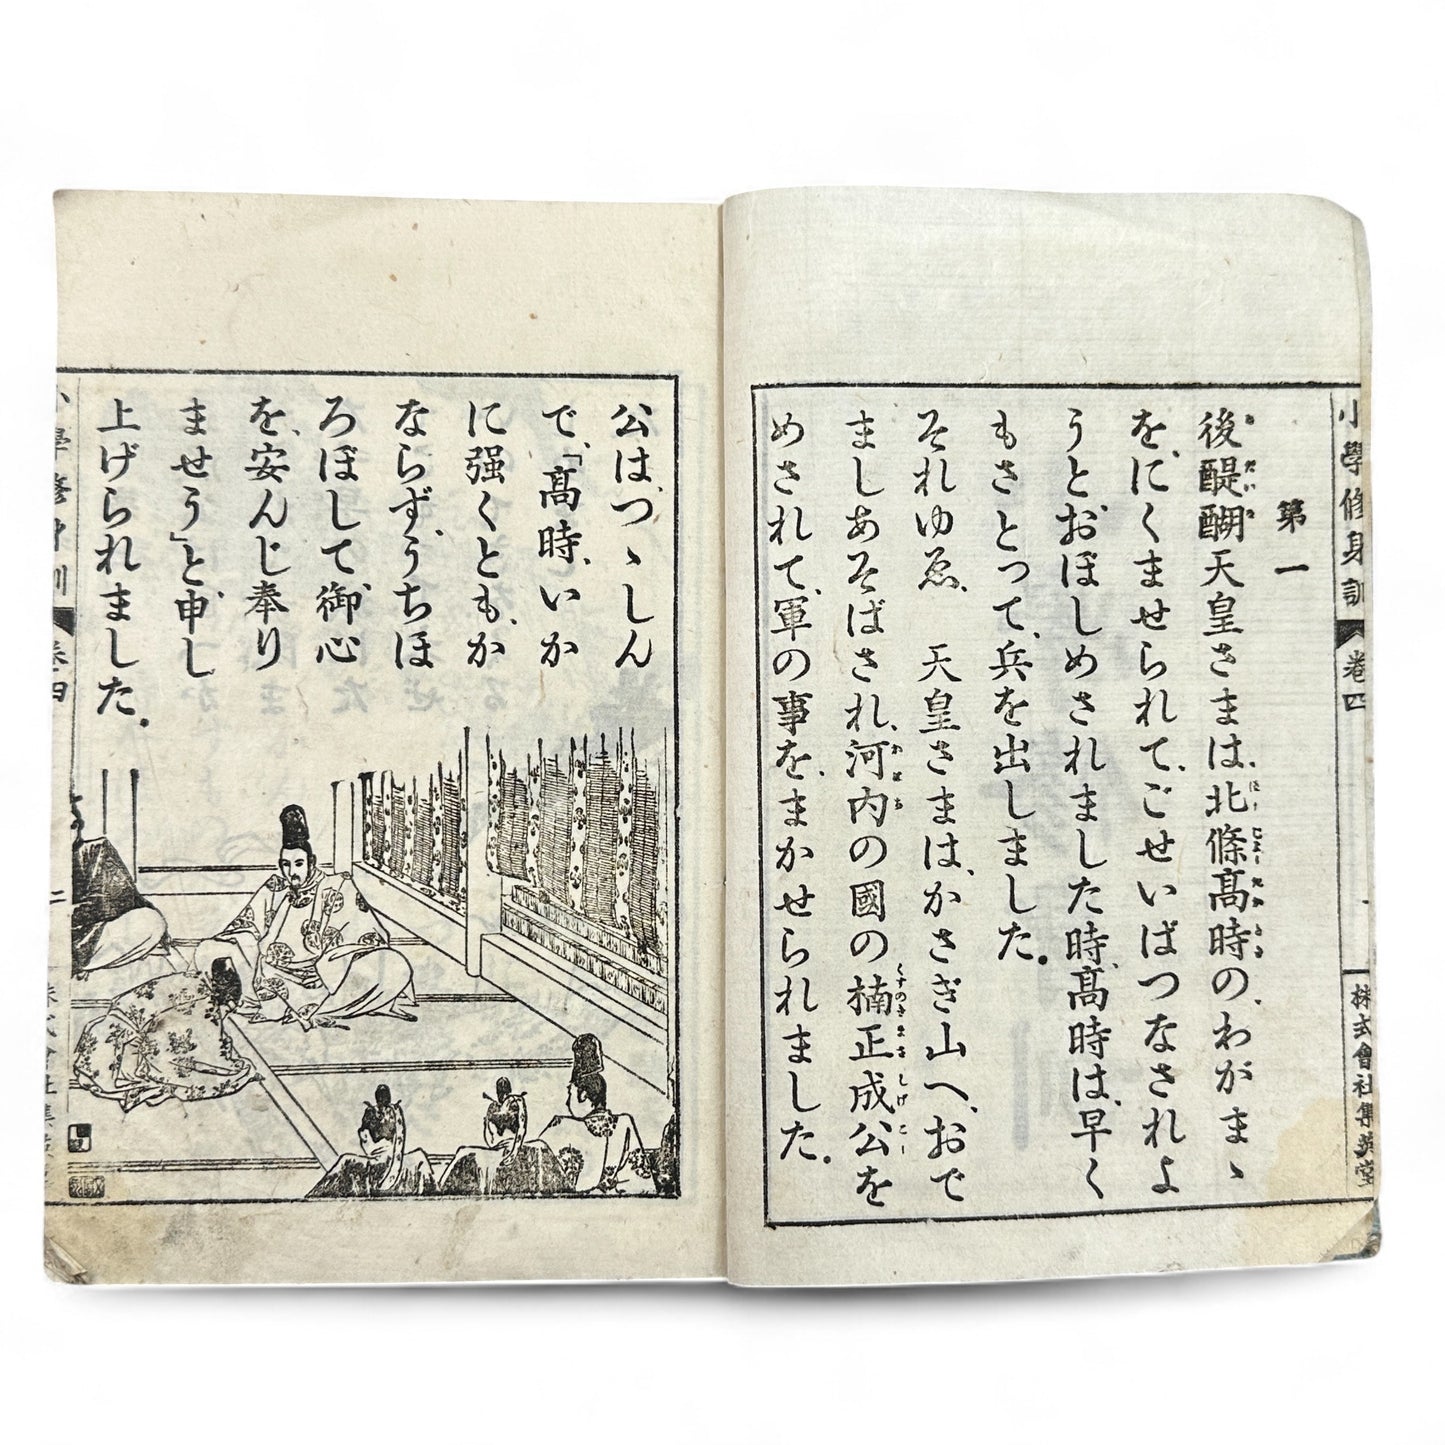 小學修身訓 卷四 一 株式會社集英堂
第一
後醍醐天皇さまは、北條高時の、わがまゝ
を、にくませられて、ごせいばつなされよ
うと、おぼしめされました時、高時は、早く
もさとつて、兵を出しました。
それゆゑ、天皇さまは、かさぎ山へ、おで
ましあそばされ、河内の國の楠正成公を
めされて、軍の事を、まかせられました。
公は、つゝしん
で、「高時、いか
に強くとも、か
ならず、うちほ
ろぼして御心
を、安んじ奉り
ませう」と、申し
上げられました。
小學修身訓 卷四 二 株式會社集英堂